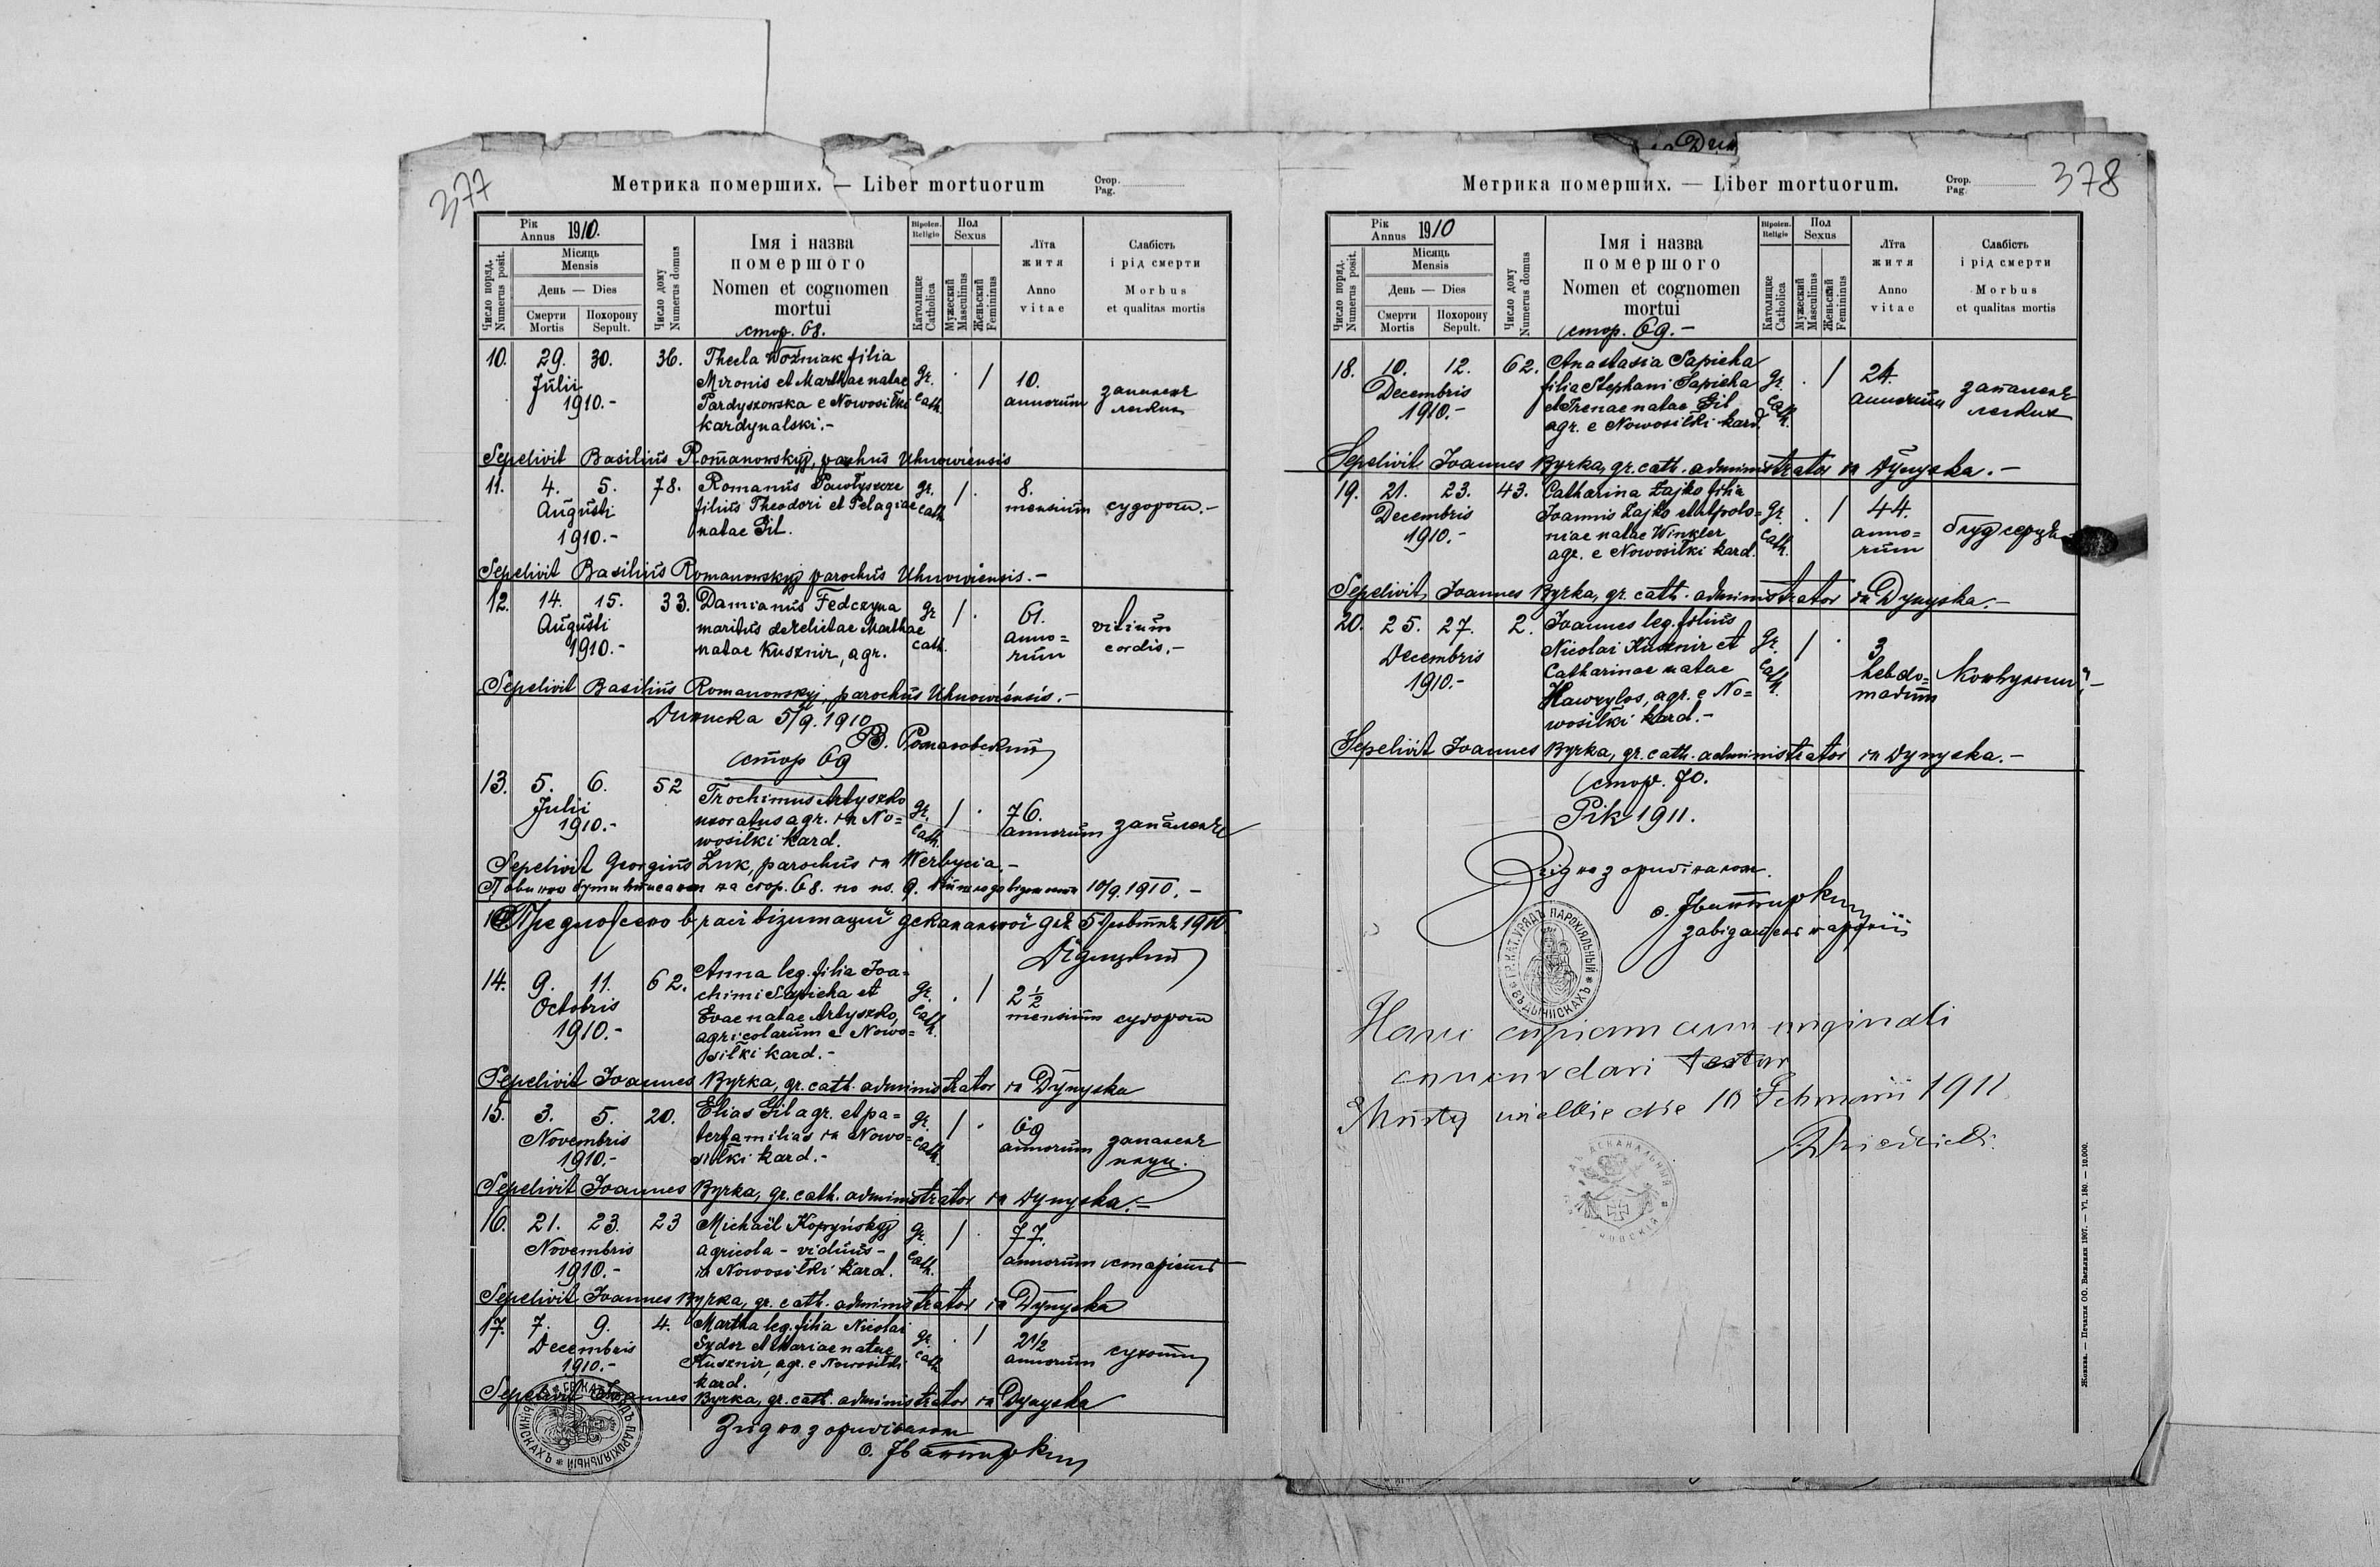 377
Метрика померших. — Liber mortuorum
Стор.
Pag.
Рік
Annus 1910.
Місяць
Mensis
День — Dies
Смерти
Mortis
Похорону
Sepult.
Число поряд.
Numerus posit.
Число дому
Numerus domus
Імя і назва
помершого
Nomen et cognomen
mortui
стор. 68.
Віроісп.
Religio
Католицке
Catholica
Пол
Sexus
Мужеский
Masculinus
Женьский
Femininus
Лїта
житя
Anno
vitae
Слабість
і рід смерти
Morbus
et qualitas mortis
10. 29. 30. 36. Thecla Woźniak filia
Julii Mironis et Marthae natae gr. . 1 10. запаленє
1910.- Pardyszowska e Nowosiłki cath. annorum легких
kardynalski.-
Sepelivit Basilius Romanowskyj, parochus Uhnoviensis
11. 4. 5. 78. Romanus Pawłyszcze gr. 1 . 8.
Augusti filius Theodori et Pelagiae cath. mensium судороги.-
1910.- natae Gil.
Sepelivit Basilius Romanowskyj parochus Uhnoviensis.-
12. 14. 15. 33. Damianus Fedczyna gr. 1 . 61. vitium
Augusti maritus derelictae Marthae cath. anno= cordis.-
1910.- natae Kusznir, agr. rum
Sepelivit Basilius Romanowskyj, parochus Uhnoviensis.-
5/9. 1910
В. Романовский
стор 69
13. 5. 6. 52 Trochimus Artyszko gr. 1 . 76.
Julii uxoratus agr. in No= cath. annorum запаленє
1910.- wosiłki kard.
Sepelivit Georgius Żuk, parochus in Werbycia.-
Повинно бути вписаном на стор. 68. по ч. 9. 10/9. 1910.-
Предложено в часї візитациї деканальної дня 1910
14. 9. 11. 62. Anna leg. filia Joa=
Octobris chimi Sapieha et gr. . 1 2 ½
1910.- Evae natae Artyszko, cath. mensium судороги
agricolarum e Nowo=
siłki kard.-
Sepelivit Joannes Byrka, gr. cath. administrator in Dynyska
15. 3. 5. 20. Elias Gil agr. et pa= gr. 1 . 69
Novembris terfamilias in Nowo= cath. annorum запаленє
1910.- siłki kard.-
Sepelivit Joannes Byrka, gr. cath. administrator in Dynyska.-
16. 21. 23. 23 Michaël Kopyńskyj gr. 1 . 77.
Novembris agricola - viduus - cath. annorum старість
1910.- in Nowosiłki kard.
Sepelivit Joannes Byrka, gr. cath. administrator in Dynyska
17. 7. 9. 4. Martha leg. filia Nicolai gr. . 1 2½
Decembris Sydor et Mariae natae cath. annorum сухоти
1910.- Kusznir, agr. e Nowosiłki
kard.
Sepelivit Joannes Byrka, gr. cath. administrator in Dynyska
Згідно з оригіналом
378
Метрика померших. — Liber mortuorum.
Стор.
Pag.
Рік
Annus 1910
Місяць
Mensis
День — Dies
Смерти
Mortis
Похорону
Sepult.
Число поряд.
Numerus posit.
Число дому
Numerus domus
Імя і назва
помершого
Nomen et cognomen
mortui
стор. 69.-
Віроісп.
Religio
Католицке
Catholica
Пол
Sexus
Мужеский
Masculinus
Женьский
Femininus
Лїта
житя
Anno
vitae
Слабість
і рід смерти
Morbus
et qualitas mortis
18. 10. 12. 62. Anastasia Sapieha
Decembris filia Stephani Sapieha gr. . 1 24. запаленє
1910.- et Irenae natae Gil cath. annorum легких
agr. e Nowosiłki kard.
Sepelivit Joannes Byrka, gr. cath. administrator in Dynyska.-
19. 21. 23. 43. Catharina Zajko filia
Decembris Joannis Zajko et Apolo= gr. . 1 44.
1910.- niae natae Winkler cath. anno= серця
agr. e Nowosiłki kard. rum
Sepelivit Joannes Byrka, gr. cath. administrator in Dynyska.-
20. 25. 27. 2. Joannes leg. filius
Decembris Nicolai Kusznir et gr. 1 . 3
1910.- Catharinae natae cath. hebdo=
Hawrylos, agr. e No= madum
wosiłki kard.-
Sepelivit Joannes Byrka, gr. cath. administrator in Dynyska.-
стор. 70.
Рік 1911.
Згідно з оригіналом.
завідатель парохії
ГР. КАТ. УРЯДЪ ПАРОХІЯЛЬНЫЙ ВЪ ДЫНИСКАХЪ
Hanc copiam cum originali
concordari testor
Mosty wielkie die 10 Februarii 1911
Жовква. — Печатня ОО. Василиян 1907. — VI. 180. — 10.000.